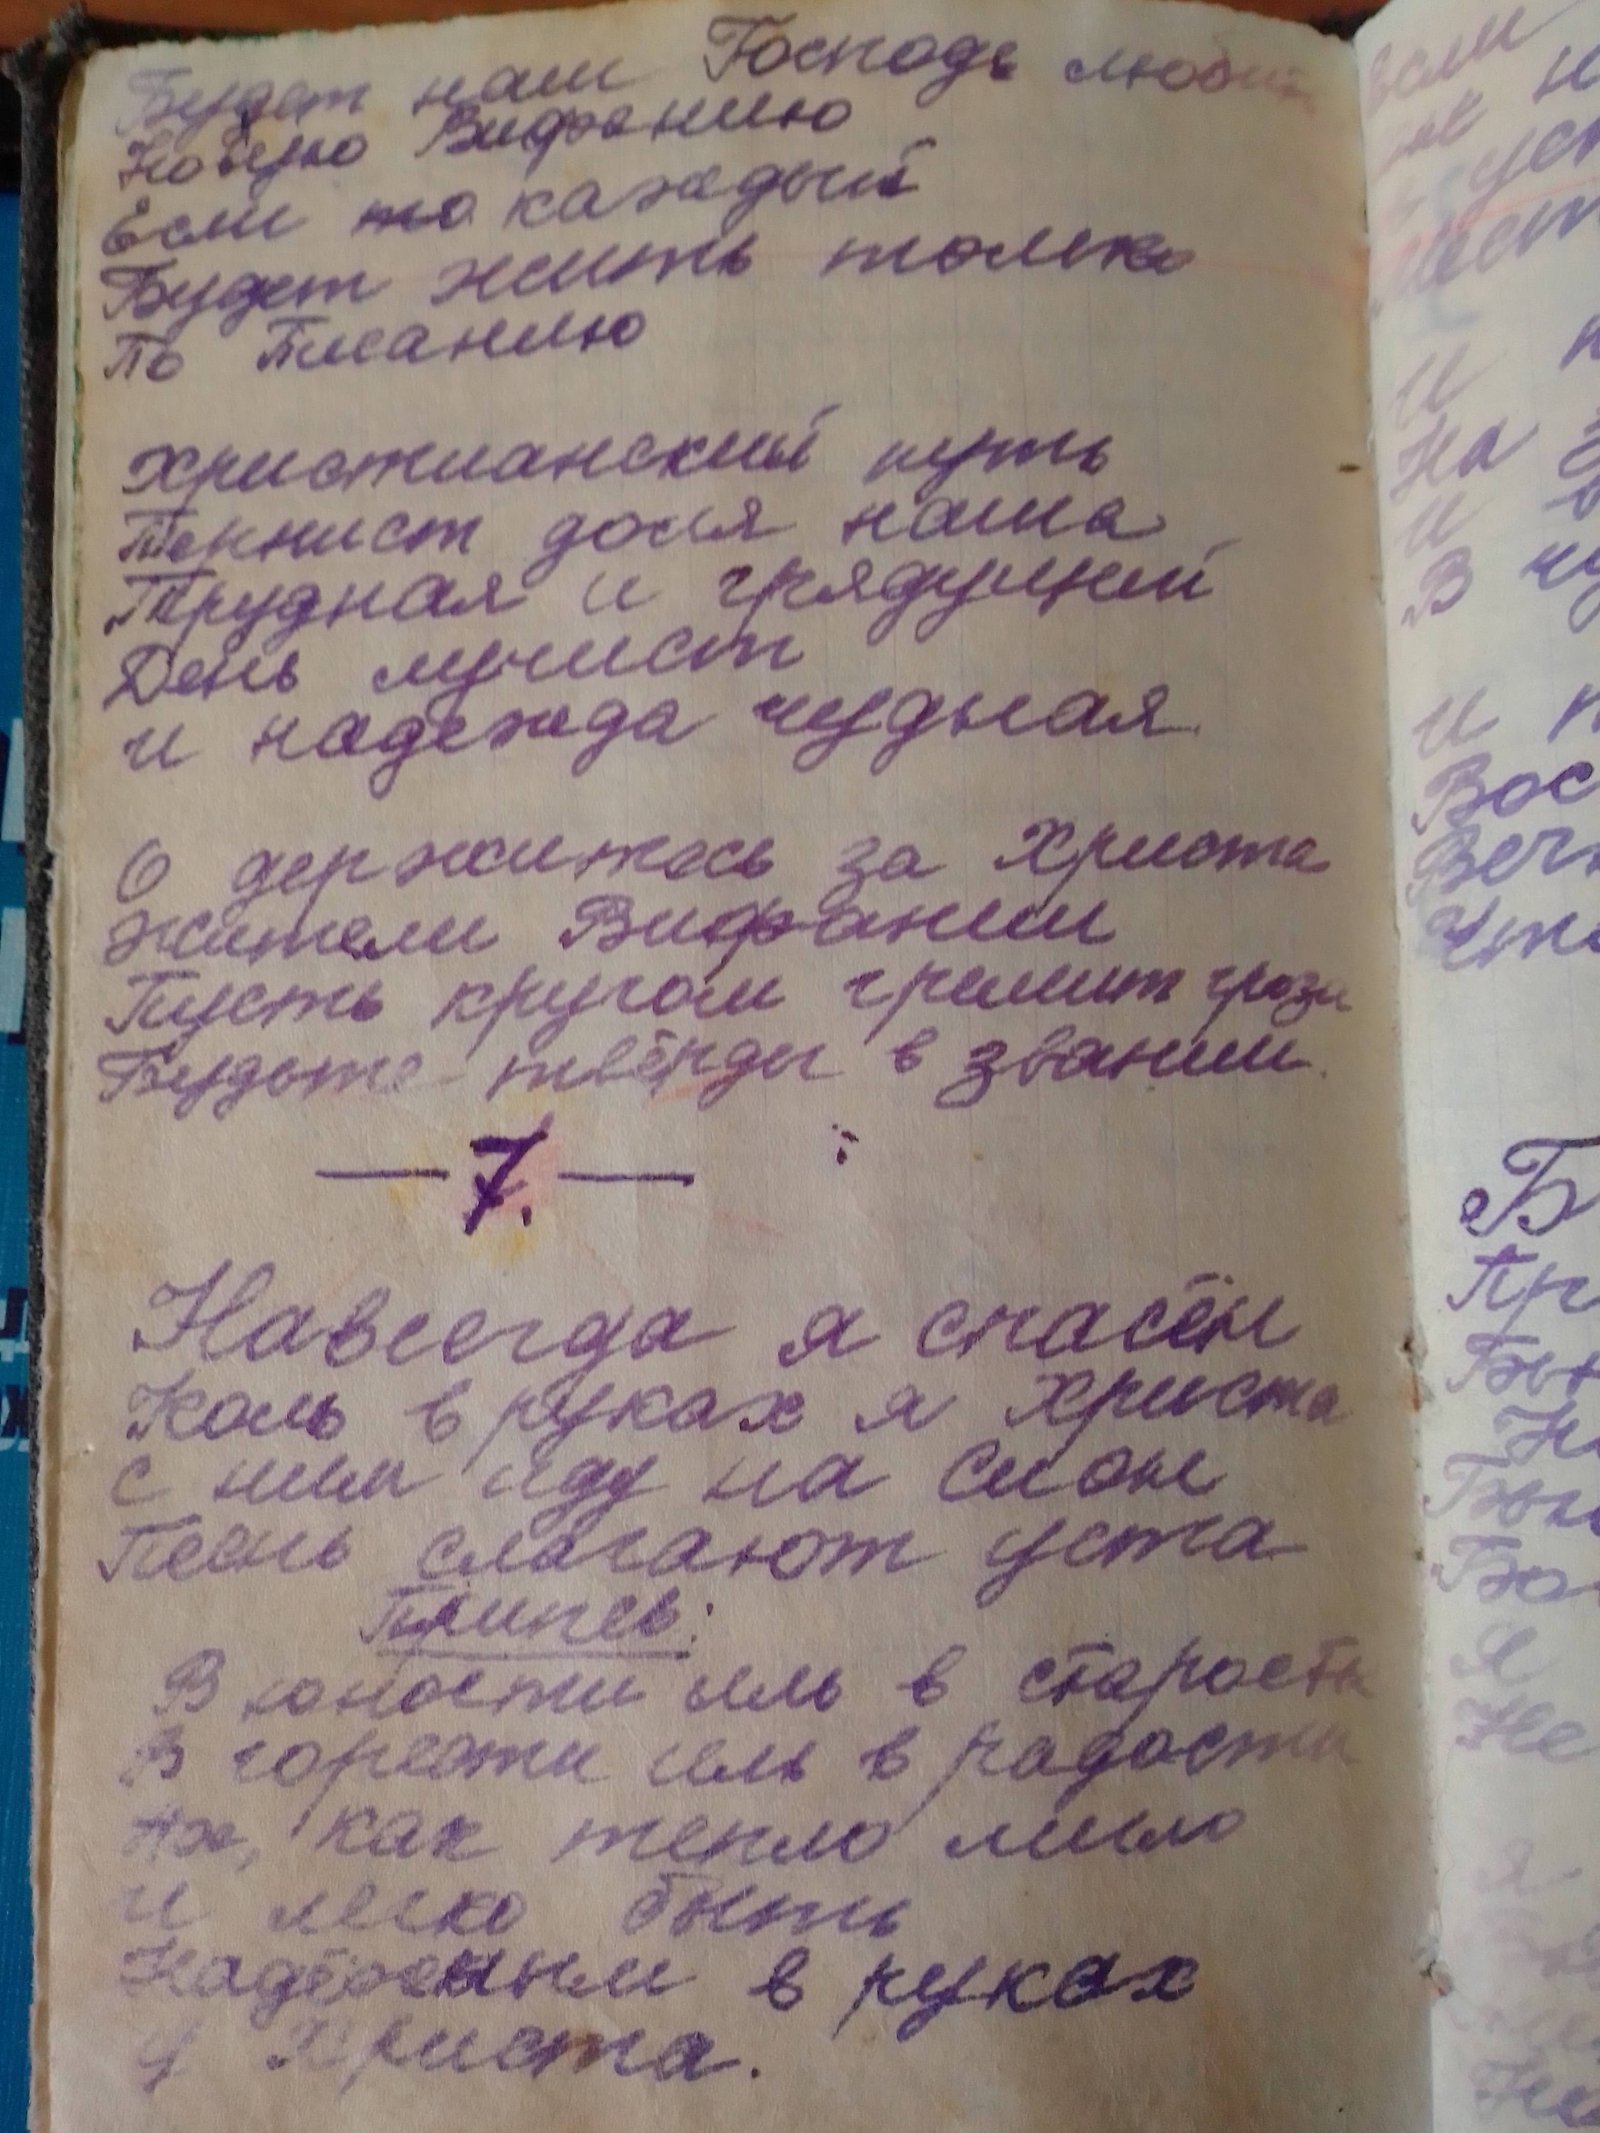 Будет нам Господь любить
Новую Вифанию
Если то каждый
Будет жить только
По Писанию
Христианский путь
Тернист доля наша
Трудная и грядущий
День мглист
и надежда чудная.
О держитесь за Христа
жители Вифании
Пусть кругом гремит гроза
Будьте твёрды в звании.
— 7. —
Навсегда я спасён
Коль в руках я Христа
с ним иду на Сион
Песнь слагают уста
Припев:
В юности иль в старости
В горести иль в радости
Ах, как тепло мило
и легко быть
Надёжным в руках
У Христа.
и
На
и
В
и
Вос
Б
Пр
Я
Не